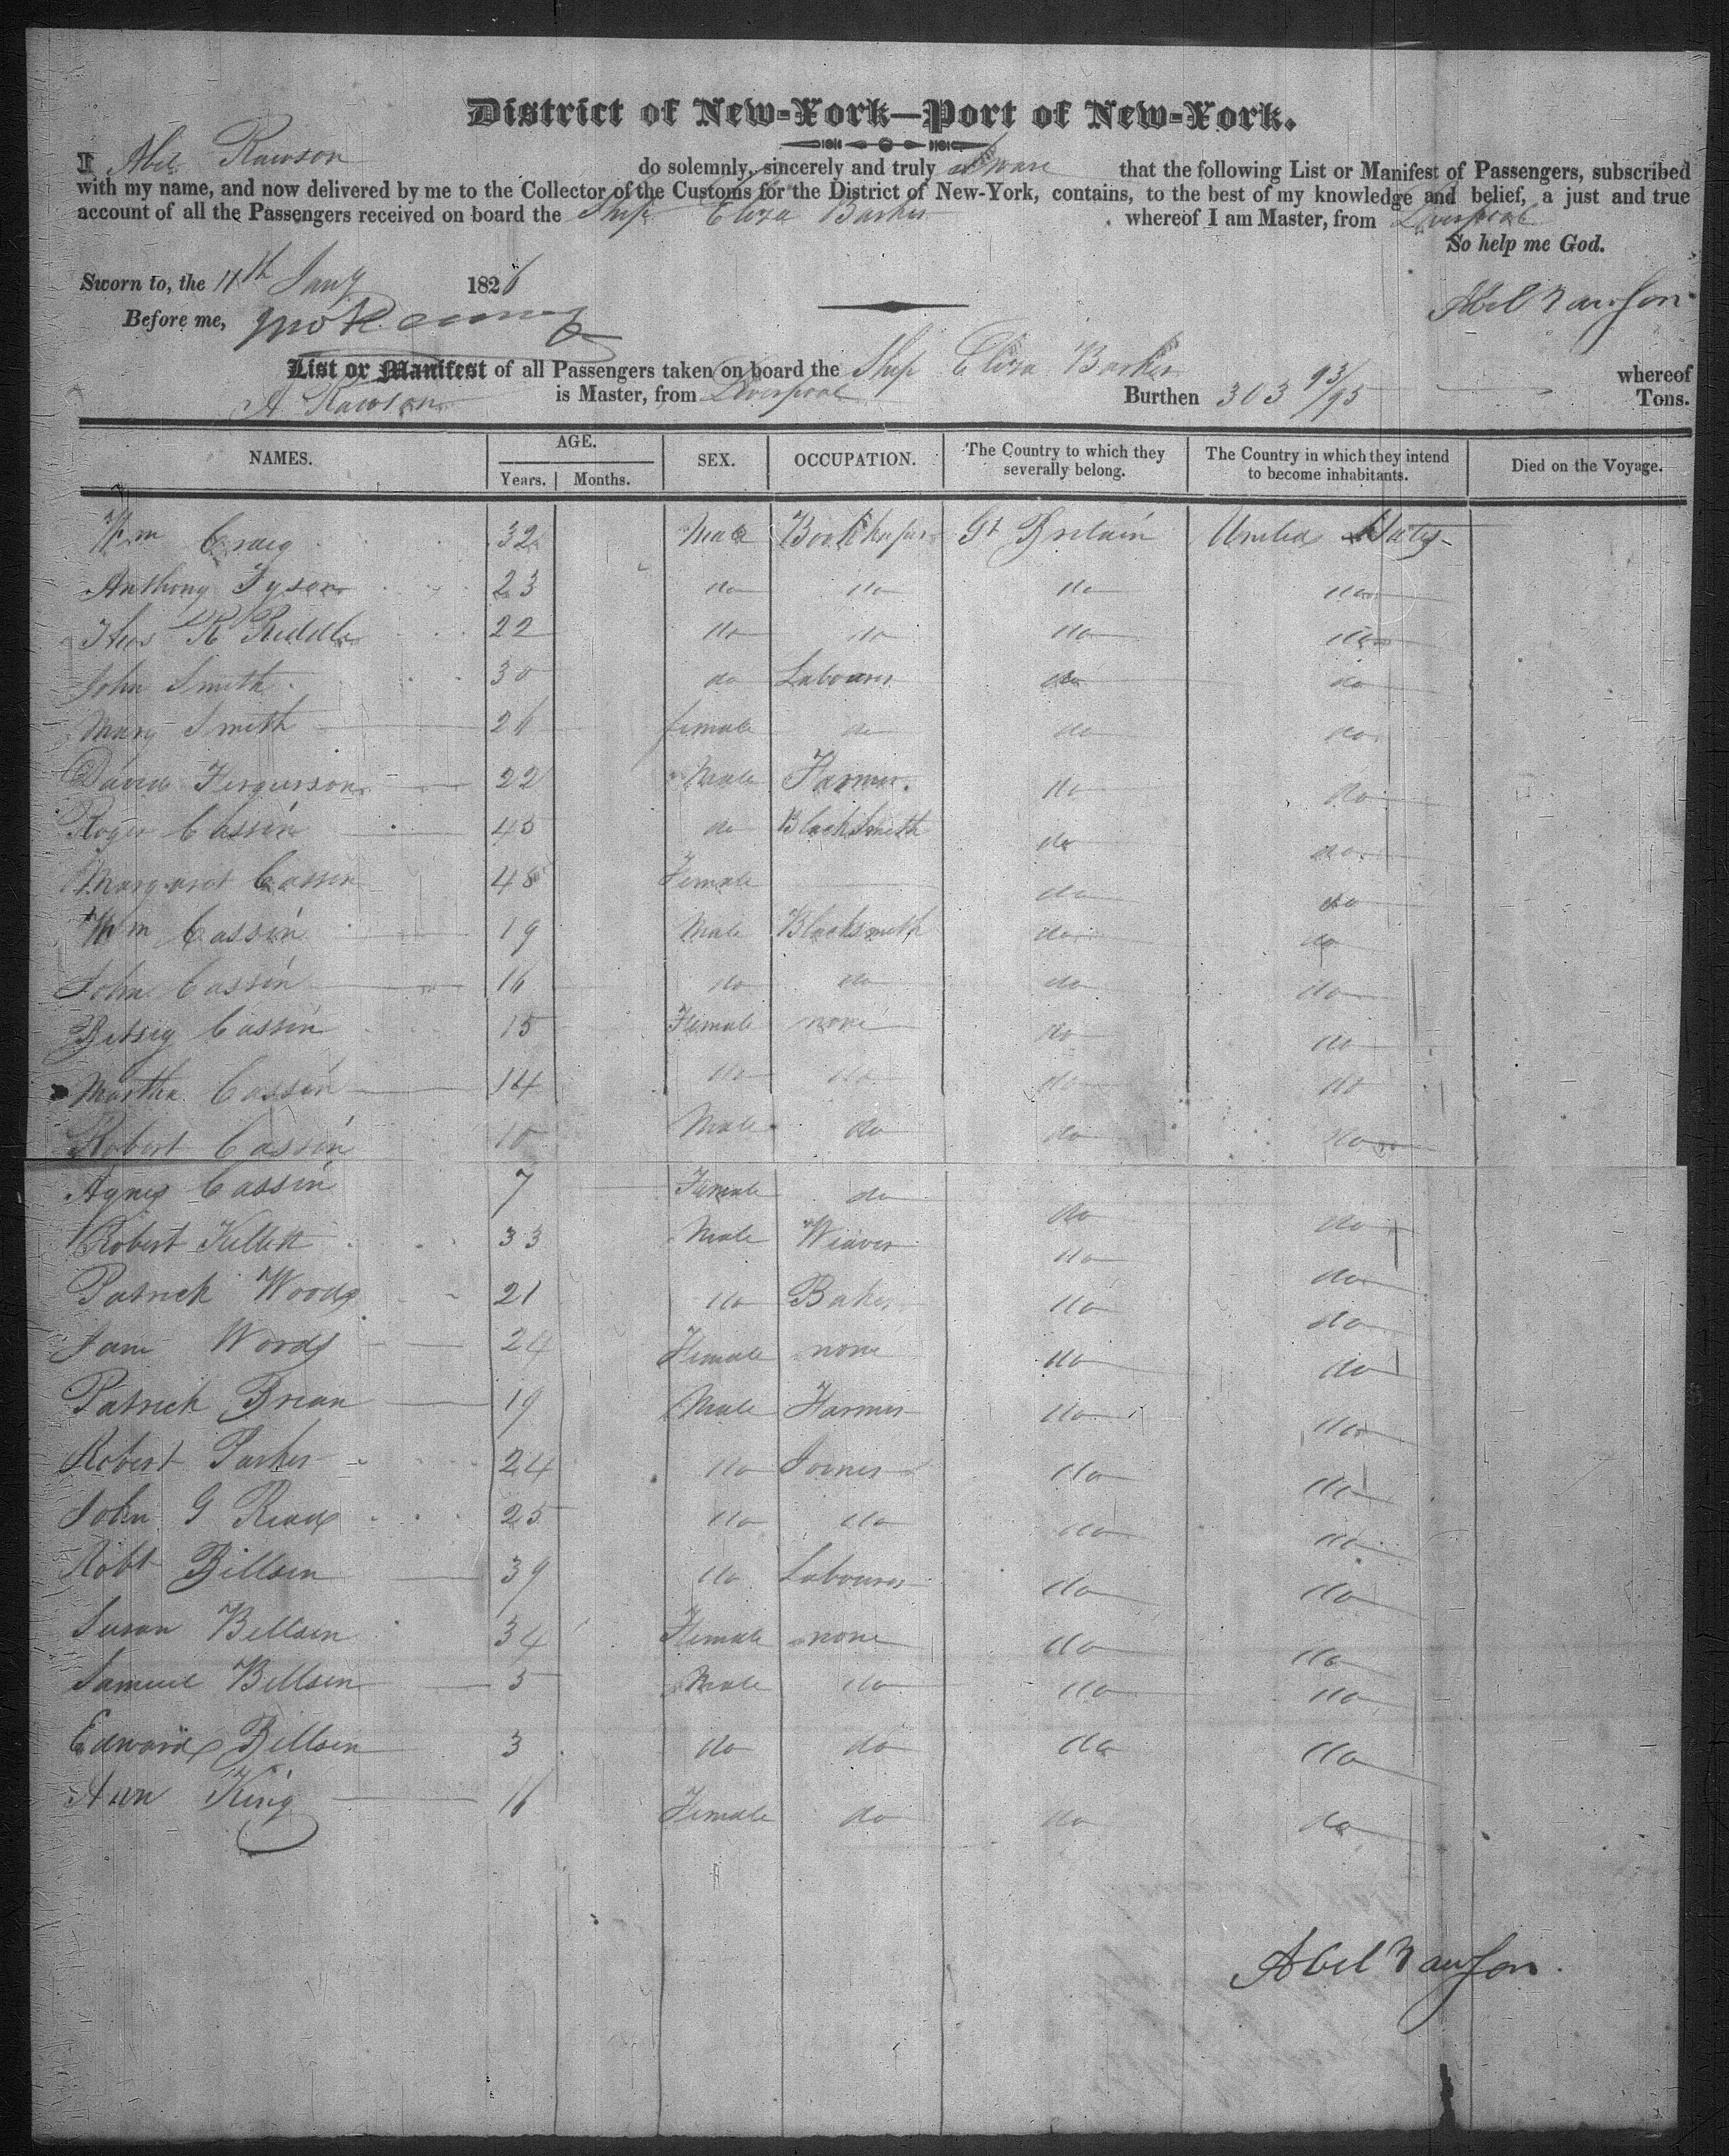 District of New-York—Port of New-York.
I Abel Rawson do solemnly, sincerely and truly sware that the following List or Manifest of Passengers, subscribed
with my name, and now delivered by me to the Collector of the Customs for the District of New-York, contains, to the best of my knowledge and belief, a just and true
account of all the Passengers received on board the Ship Eliza Barker whereof I am Master, from Liverpool
So help me God.
Sworn to, the 11th Jany 1826
Abel Rawson
Before me,
List or Manifest of all Passengers taken on board the Ship Eliza Barker whereof
A Rawson is Master, from Liverpool Burthen 303 93/95 Tons.
NAMES. AGE. Years. Months. SEX. OCCUPATION. The Country to which they severally belong. The Country in which they intend to become inhabitants. Died on the Voyage.
Wm Craig 32 Male Bookkeeper Gt Britain United States
Anthony Tyson 23 do do do do
Thos R Riddle 22 do do do do
John Smith 30 do Labourer do do
Mary Smith 26 female do do do
David Fergusson 22 Male Farmer do do
Roger Cassin 45 do BlackSmith do do
Margaret Cassin 48 Female do do
Wm Cassin 19 Male Blacksmith do do
John Cassin 16 do do do do
Betsey Cassin 15 Female none do do
Martha Cassin 14 do do do do
Robert Cassin 10 Male do do do
Agnes Cassin 7 Female do do do
Robert Kellett 33 Male Weaver do do
Patrick Woods 21 do Baker do do
Jane Woods 24 Female none do do
Patrick Brian 19 Male Farmer do do
Robert Parker 24 do Joiner do do
John G Read 25 do do do do
Robt Billsen 39 do Labourer do do
Susan Billsen 34 Female none do do
Samuel Billsen 5 Male do do do
Edward Billsen 3 do do do do
Ann King 16 Female do do do
Abel Rawson